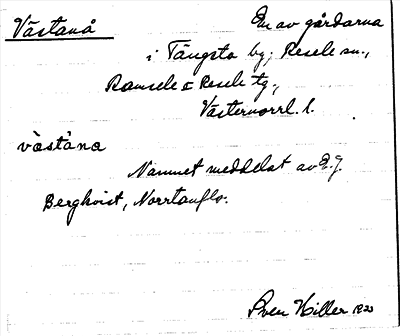 Västanå
En av gårdarna
i Tängsta by; Resele sn.,
Ramsele & Resele tg.,
Västernorrl. l.
väståna
Namnet meddelat av E. J.
Bergkvist, Norrtanflo.
Sven Hiller